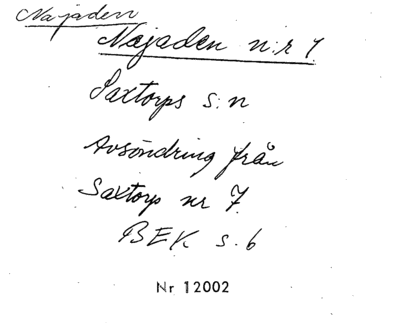 Najaden
Najaden n:r 1.
Saxtorps s:n
Avsöndring från
Saxtorp nr 7.
BEK s. 6
Nr 12002